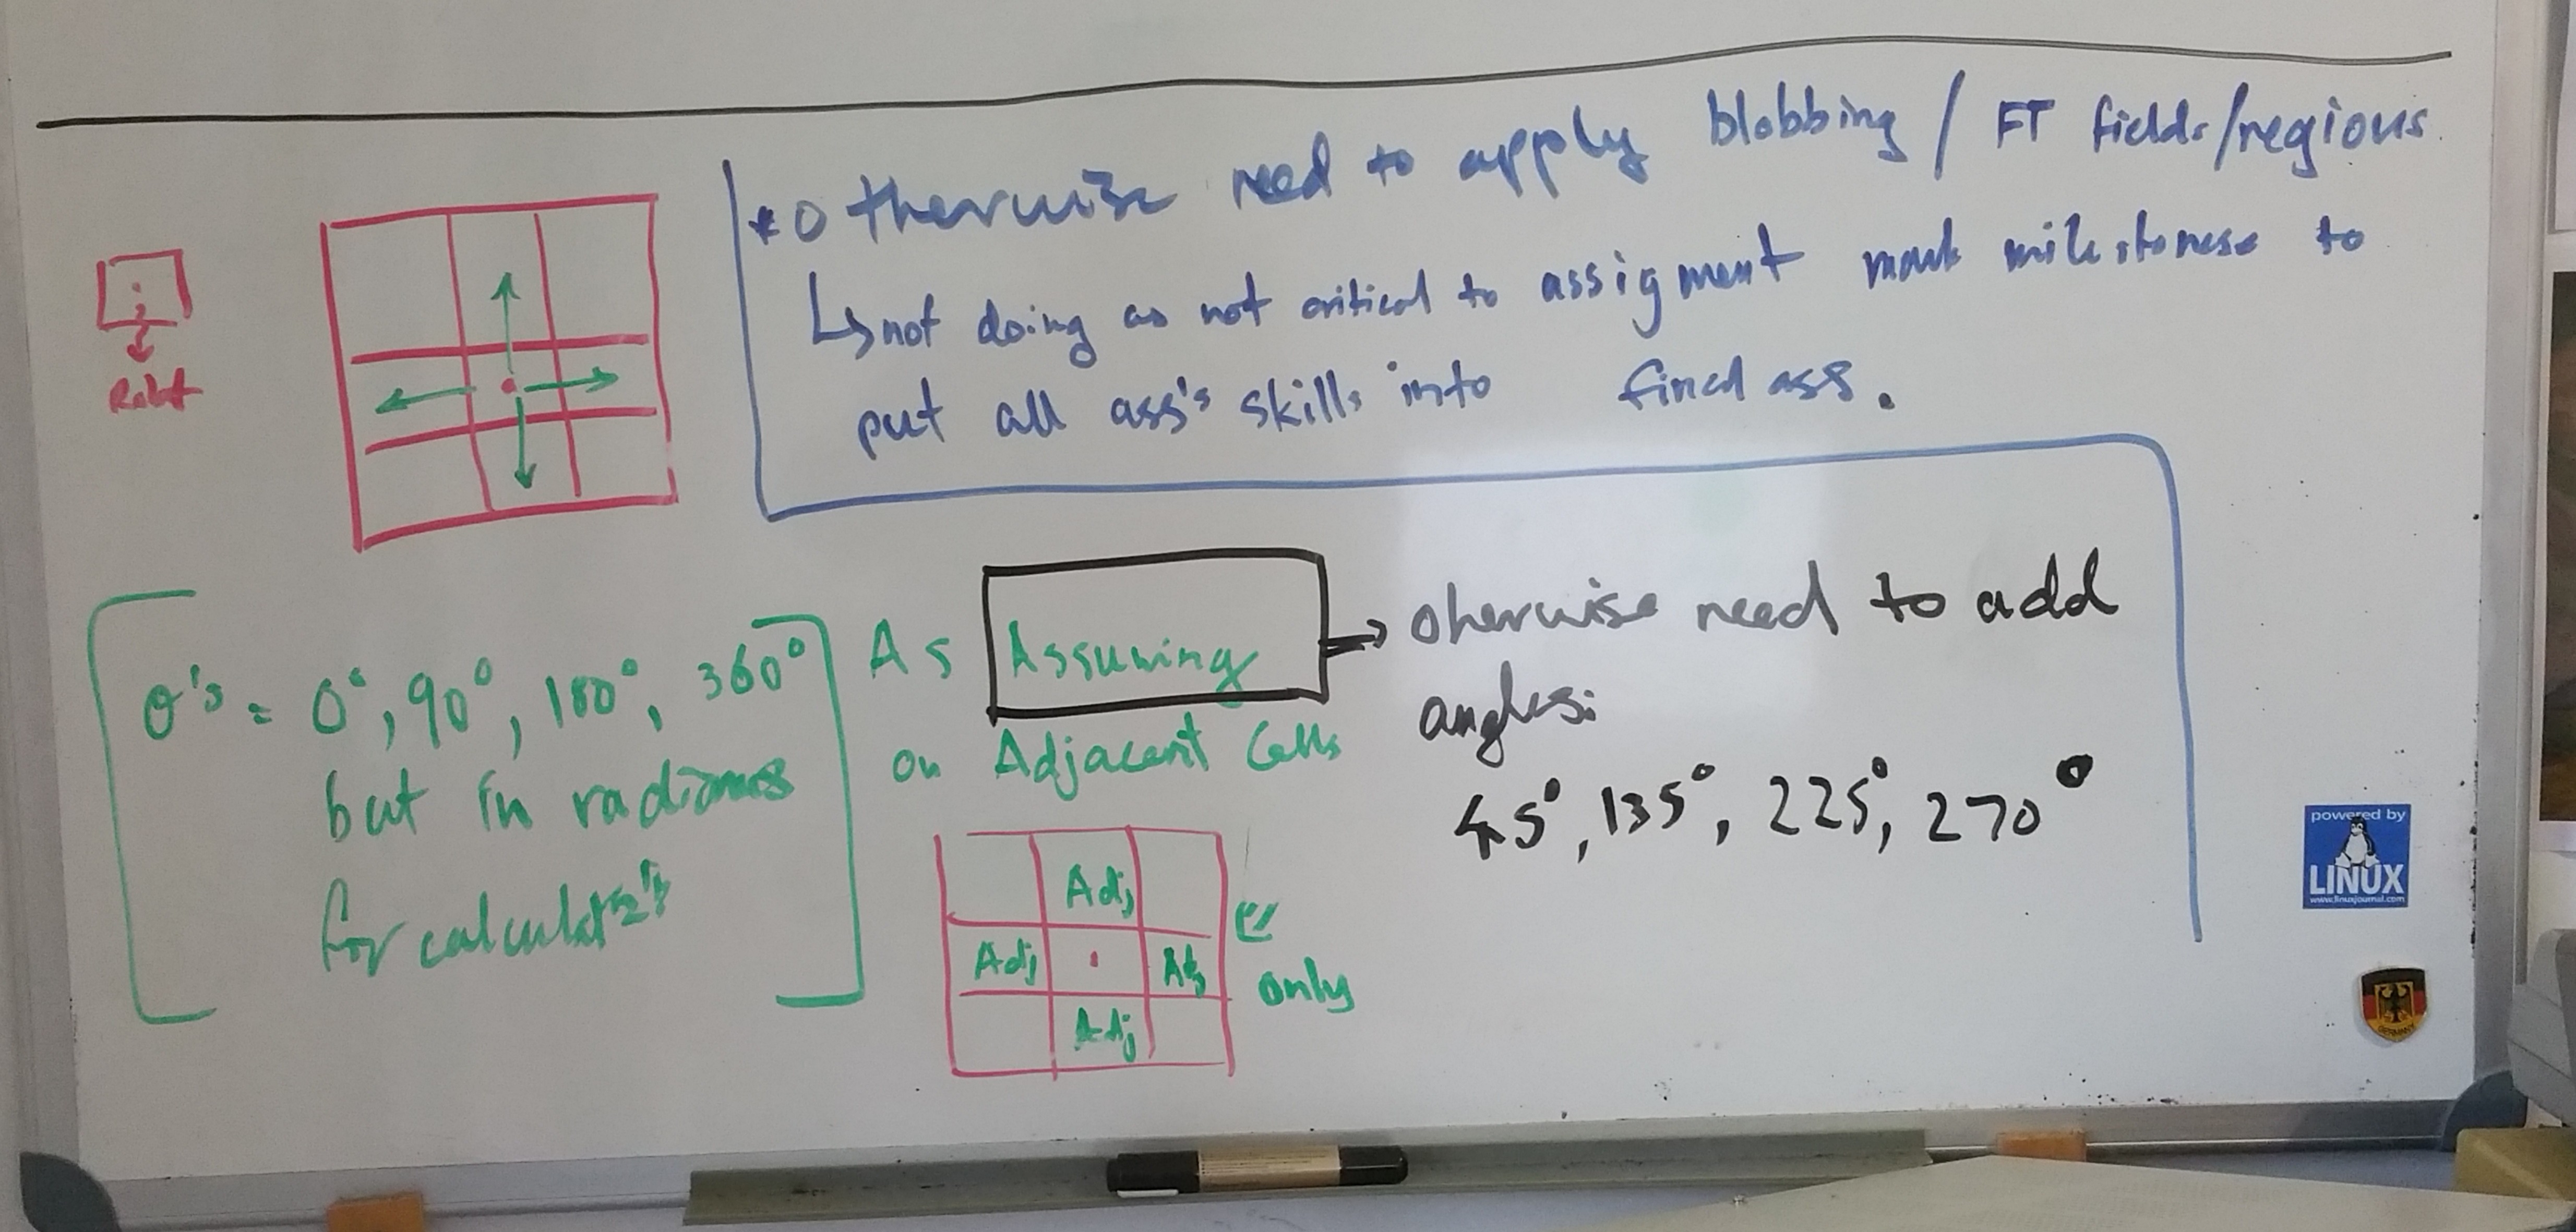 * Otherwise need to apply blobbing / FT fields/regions
↳ not doing as not critical to assigment mark milestonese to
put all ass's skills into final ass.
Robot
θ's = 0°, 90°, 180°, 360°
but in radians
for calculat
As Assuming
on Adjacent Cells
→ oherwise need to add
angles:
45°, 135°, 225°, 270°
Adj
Adj Adj
Adj
only
powered by
LINUX
www.linuxjournal.com
GERMANY